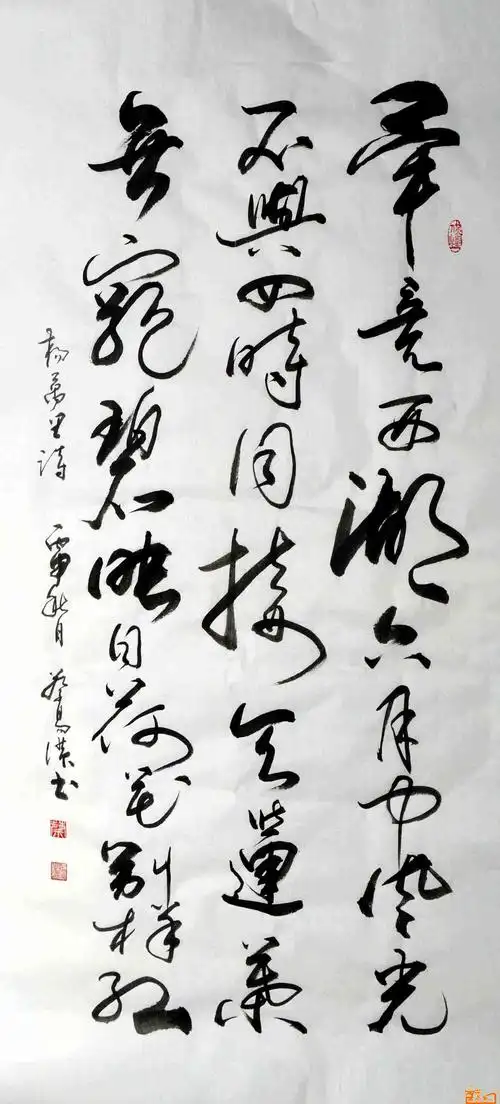 畢竟西湖六月中風光
不與四時同接天蓮葉
無窮碧映日荷花別樣紅
楊萬里詩 秋月 書